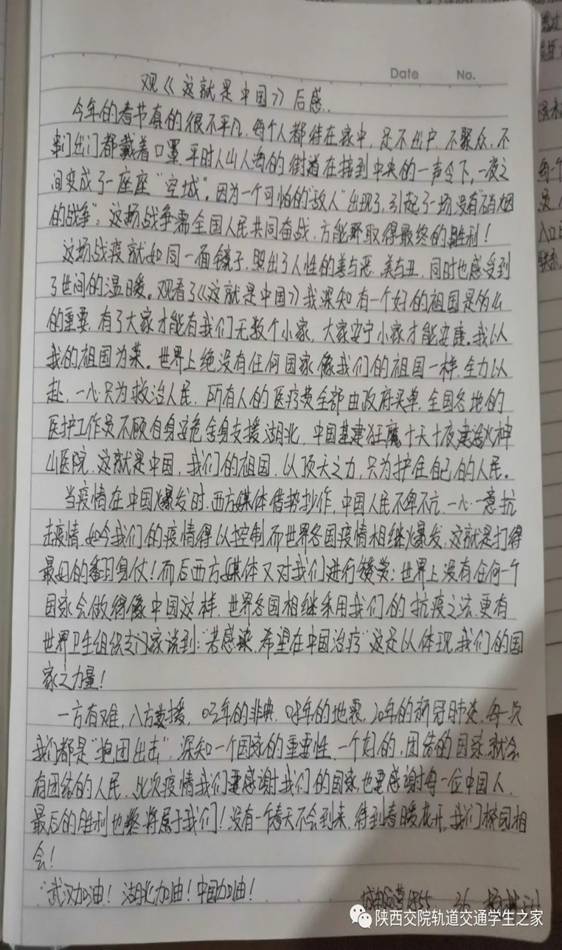 Date No.
观《这就是中国》后感.
今年的春节真的很不平凡,每个人都待在家中,足不出户,不聚众,不
串门出门都戴着口罩,平时人山人海的街道在接到中央的一声令下,一夜之
间变成了一座座“空城”。因为一个可怕的“敌人”出现了,引起了一场没有“硝烟
的战争”,这场战争需全国人民共同奋战,方能取得最终的胜利!
这场战疫就如同一面镜子,照出了人性的善与恶,美与丑,同时也感受到
了世间的温暖。观看了《这就是中国》我深知有一个好的祖国是多么
的重要,有了大家才能有我们无数个小家,大家安宁小家才能安康。我以
我的祖国为荣。世界上绝没有任何国家像我们的祖国一样,全力以
赴,一心只为救治人民,所有人的医疗费全部由政府买单,全国各地的
医护工作员不顾自身安危全身支援湖北,中国基建狂魔十天十夜建造火神
山医院,这就是中国,我们的祖国,以顶天之力,只为护住自己的人民。
当疫情在中国爆发时,西方媒体借势抄作,中国人民不卑不亢,一心一意抗
击疫情,如今我们的疫情得以控制而世界各国疫情相继爆发,这就是打得
最好的翻身仗!而后西方媒体又对我们进行赞赏:世界上没有任何一个
国家会做得像中国这样,世界各国相继采用我们的抗疫之法,更有
世界卫生组织专门家谈到:“若感染,希望在中国治疗”这足以体现,我们的国
家之力量!
一方有难,八方支援,03年的非典,08年的地震,20年的新冠肺炎,每一次
我们都是“抱团出击”,深知一个国家的重要性,一个好的,团结的国家就会
有团结的人民,此次疫情我们要感谢我们的国家,也要感谢每一位中国人,
最后的胜利也终将属于我们!没有一个春天不会到来,待到春暖花开,我们樱园相
会!
“武汉加油!湖北加油!中国加油!
1855 36
陕西交院轨道交通学生之家